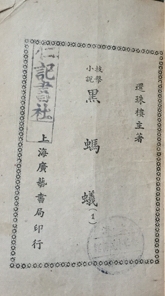 還珠樓主著
技擊小說
黑螞蟻(1)
上海廣藝書局印行
仁記書社